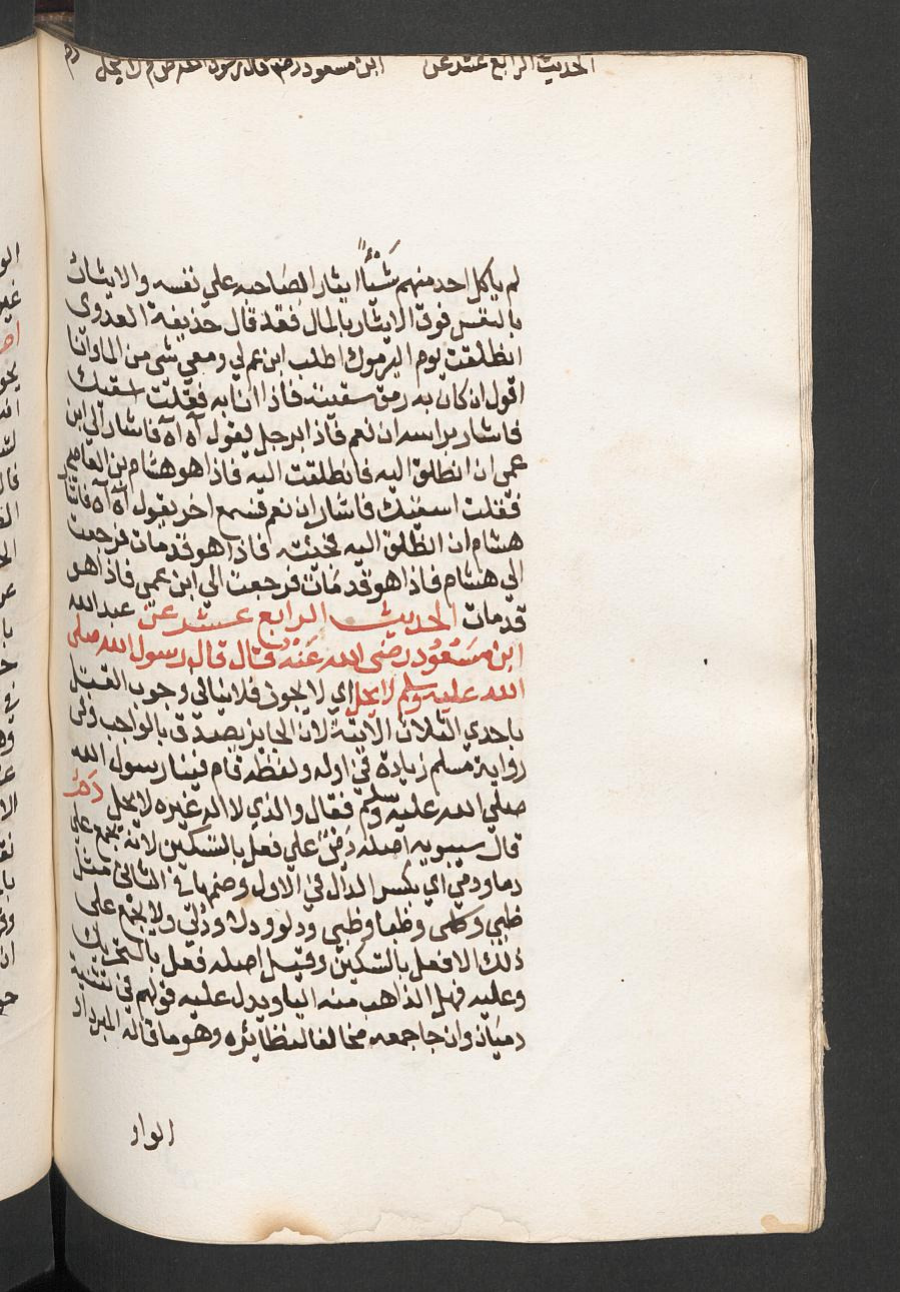 الحديث الرابع عشر عن ابن مسعود رضه قال رسول الله ص م لا يحل
لم ياكل احد منهم شيأ ايثار الصاحبه علي نفسه والايثار
بالنفس فوق الايثار بالمال فقد قال حذيفة العدوى
انطلقت يوم اليرموك اطلب ابن عم لي ومعي شى من الما وانا
اقول ان كان به رمق سقيته فاذا انا به فقلت اسقيك
فاشار براسه ان نعم فاذا برجل يقول آه اه فاشار الي ابن
عمى ان انطلق اليه فانطلقت اليه فاذا هو هشام بن العاصي
فقلت اسقيك فاشار ان نعم فسمع اخر يقول آه آه فاشار
هشام ان انطلق اليه فجئته فاذا هو قد مات فرجعت
الي هشام فاذا هو قد مات فرجعت الي ابن عمى فاذا هو
قد مات الحديث الرابع عشر عن عبد الله
ابن مسعود رضى الله عنه قال قال رسول الله صلى
الله عليه وسلم لا يحل اي لا يجوز فلا ينافي وجوب القتل
باحدي الثلاث الاتية لان الجايز يصدق بالواجب وفى
رواية مسلم زيادة في اوله ولفظه قام فينا رسول الله
صلي الله عليه وسلم فقال والذي لا اله غيره لا يحل دم
قال سيبويه اصله دمى علي فعل بالتسكين لانه يجمع علي
دما ودمي اي بكسر الدال في الاول وضمها في الثانى مثل
ظبى وظبا وظبى ودلو ودلا ودلي ولا يجمع على
ذلك الا فعل بالتسكين وقيل اصله فعل بالتحريك
وعليه فهل الذاهب منه اليا ويدل عليه قولهم في تثنيته
دميان وان جا جمعه مخالفا لنظائره وهو ما قاله المبرد او
الواو